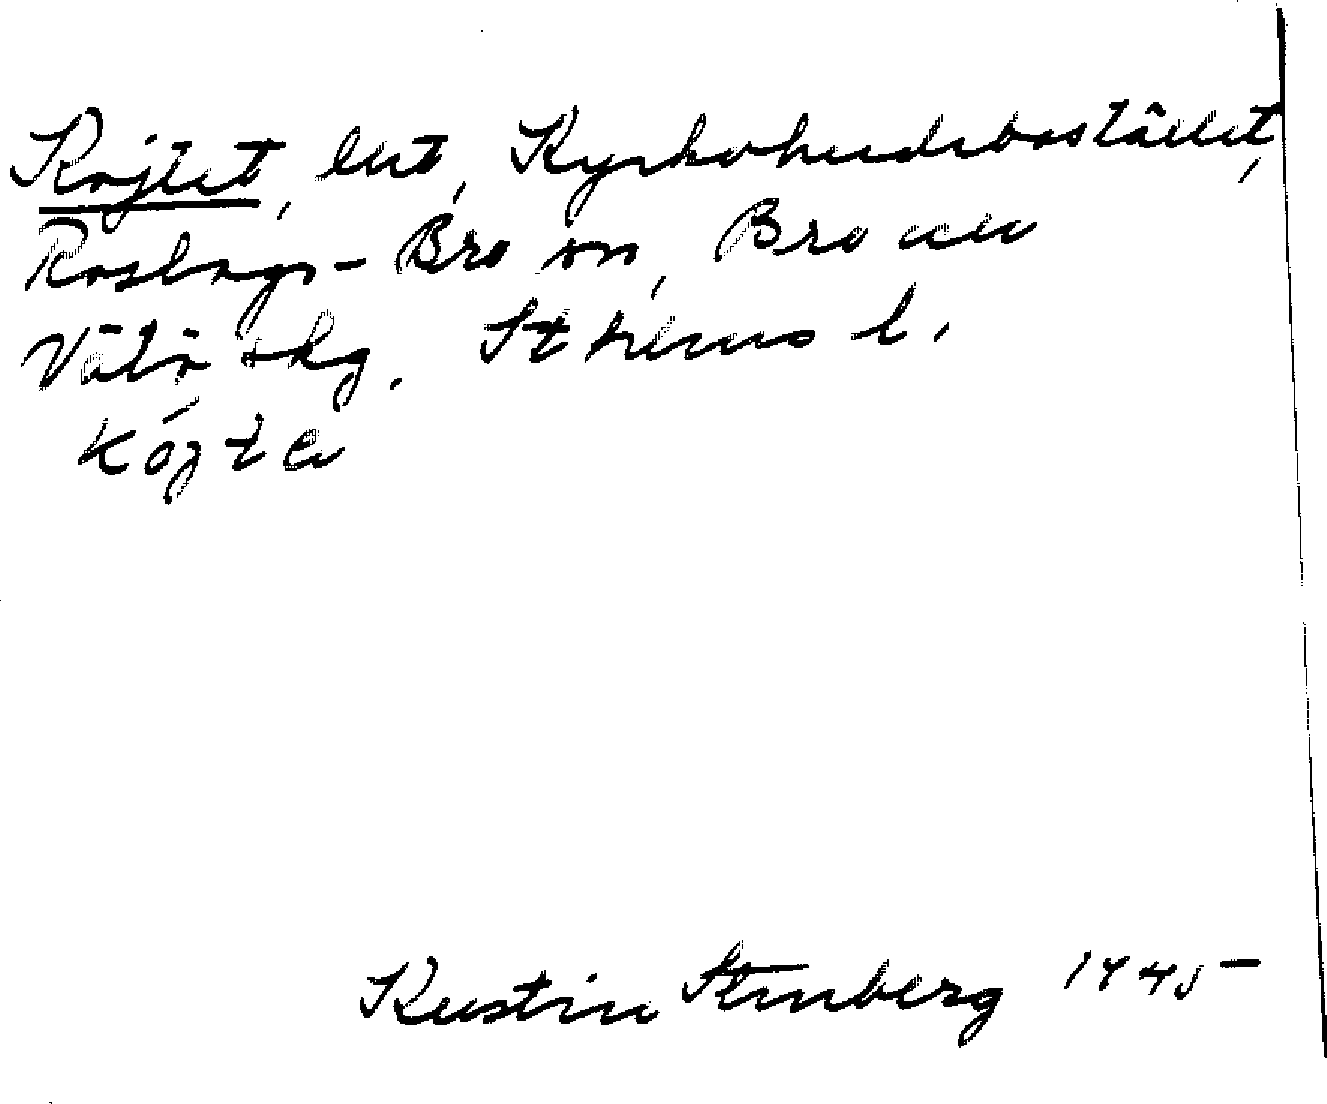 Röjtet, lut, Kyrkoherdebostället,
Roslags-Bro sn, Bro och
Vätö skg. Sthlms l.
Kerstin Stenberg 1945